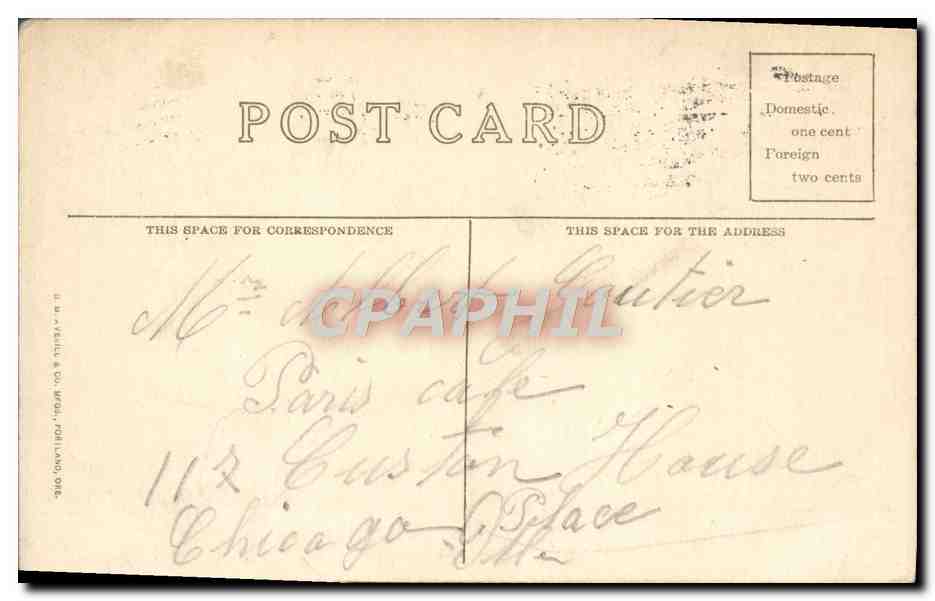 POST CARD
Postage
Domestic
one cent
Foreign
two cents
THIS SPACE FOR CORRESPONDENCE
THIS SPACE FOR THE ADDRESS
Mr Albert Gautier
CPAPHIL
Paris café
117 Custon House
Place
Chicago Ill
& CO. MFGS., PORTLAND, ORE.